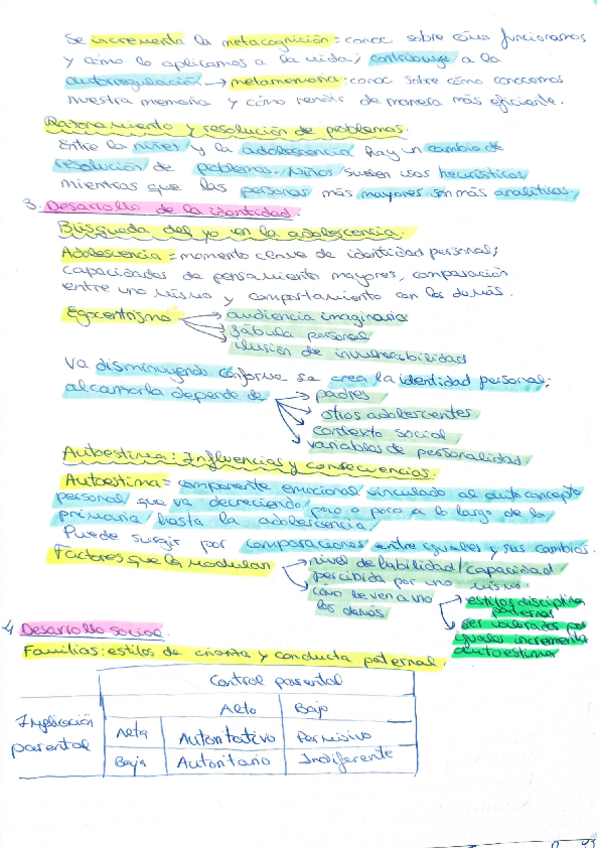 Se incrementa la metacognición = conoc sobre cómo funcionamos
y cómo lo aplicamos a la vida; contribuye a la
autorregulación → metamemoria: conoc sobre cómo conocemos
nuestra memoria y cómo rendir de manera más eficiente.
Razonamiento y resolución de problemas.
Entre la niñez y la adolescencia hay un cambio de
resolución de problemas. Niños suelen usar heurísticos
mientras que las personas más mayores son más analíticas.
3. Desarrollo de la identidad.
Búsqueda del yo en la adolescencia.
Adolescencia = momento clave de identidad personal;
capacidades de pensamiento mayores, comparación
entre uno mismo y comportamiento con los demás.
Egocentrismo → audiencia imaginaria
→ fábula personal
→ ilusión de invulnerabilidad
Va disminuyendo conforme se crea la identidad personal;
alcanzarla depende de → padres
→ otros adolescentes
→ contexto social
→ variables de personalidad.
Autoestima: Influencias y consecuencias.
Autoestima = componente emocional vinculado al autoconcepto
personal que va decreciendo poco a poco a lo largo de la
primaria hasta la adolescencia.
Puede surgir por comparaciones entre iguales y sus cambios.
Factores que la modulan → nivel de habilidad/capacidad
percibida por uno mismo.
→ cómo le ven a uno
los demás
→ estilos disciplina
paternal
→ ser valorados por
iguales incrementa
autoestima
4 Desarrollo social.
Familias: estilos de crianza y conducta paternal.
Control parental
Alto Bajo
Implicación
parental
Alta Autoritativo Permisivo
Baja Autoritario Indiferente